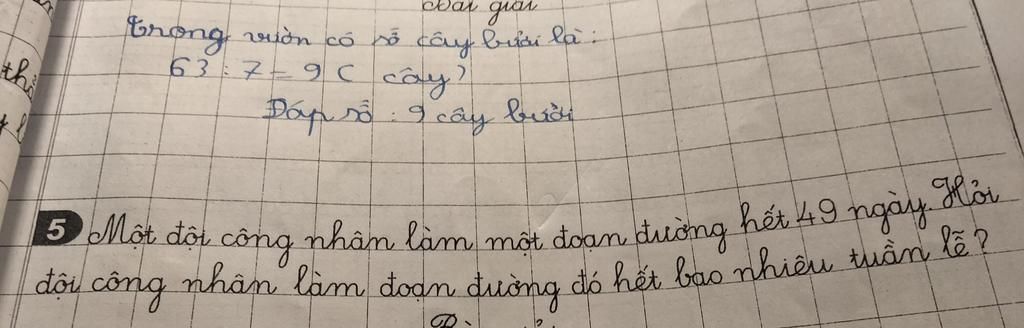 Bài giải
Trong vườn có số cây bưởi là:
63 : 7 = 9 ( cây )
Đáp số : 9 cây bưởi
5 Một đội công nhân làm một đoạn đường hết 49 ngày. Hỏi
đội công nhân làm đoạn đường đó hết bao nhiêu tuần lễ?